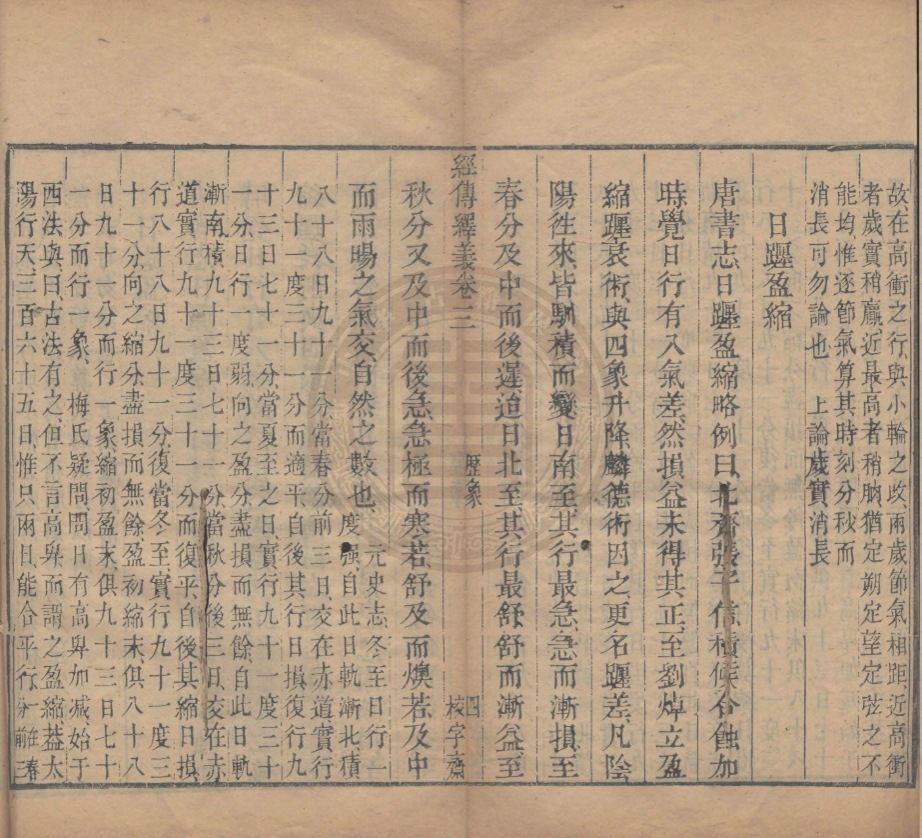 故在高衝之行與小輪之改兩歲節氣相距近高衝
者歲實稍贏近最高者稍朒猶定朔定望定弦之不
能均惟逐節氣算其時刻分秋而
消長可勿論也 上論歲實消長
日躔盈縮
唐書志日躔盈縮略例曰北齊張子信積候合蝕加
時覺日行有入氣差然損益未得其正至劉焯立盈
縮躔衰術與四象升降麟德術因之更名躔差凡陰
陽徃來皆馴積而變日南至其行最急急而漸損至
春分及中而後遲迨日北至其行最舒舒而漸益至
經傳繹義卷三 歴象 四 校字齋
秋分又及中而後急急極而寒若舒及而燠若及中
而雨暘之氣交自然之數也 元史志冬至日行一
度强自此日軌漸北積
八十八日九十一分當春分前三日交在赤道實行
九十一度三十一分而適平自後其行日損復行九
十三日七十一分當夏至之日實行九十一度三十
一分日行一度弱向之盈分盡損而無餘自此日軌
漸南積九十三日七十一分當秋分後三日交在赤
道實行九十一度三十一分而復平自後其縮日損
行八十八日九十一分復當冬至實行九十一度三
十一分向之縮分盡損而無餘盈初縮末俱八十八
日九十一分而行一象縮初盈末俱九十三日七十
一分而行一象梅氏疑問問日有高卑加減始于
西法與曰古法有之但不言高卑而謂之盈縮葢太
陽行天三百六十五日惟只兩日能合平行一在春
分前三